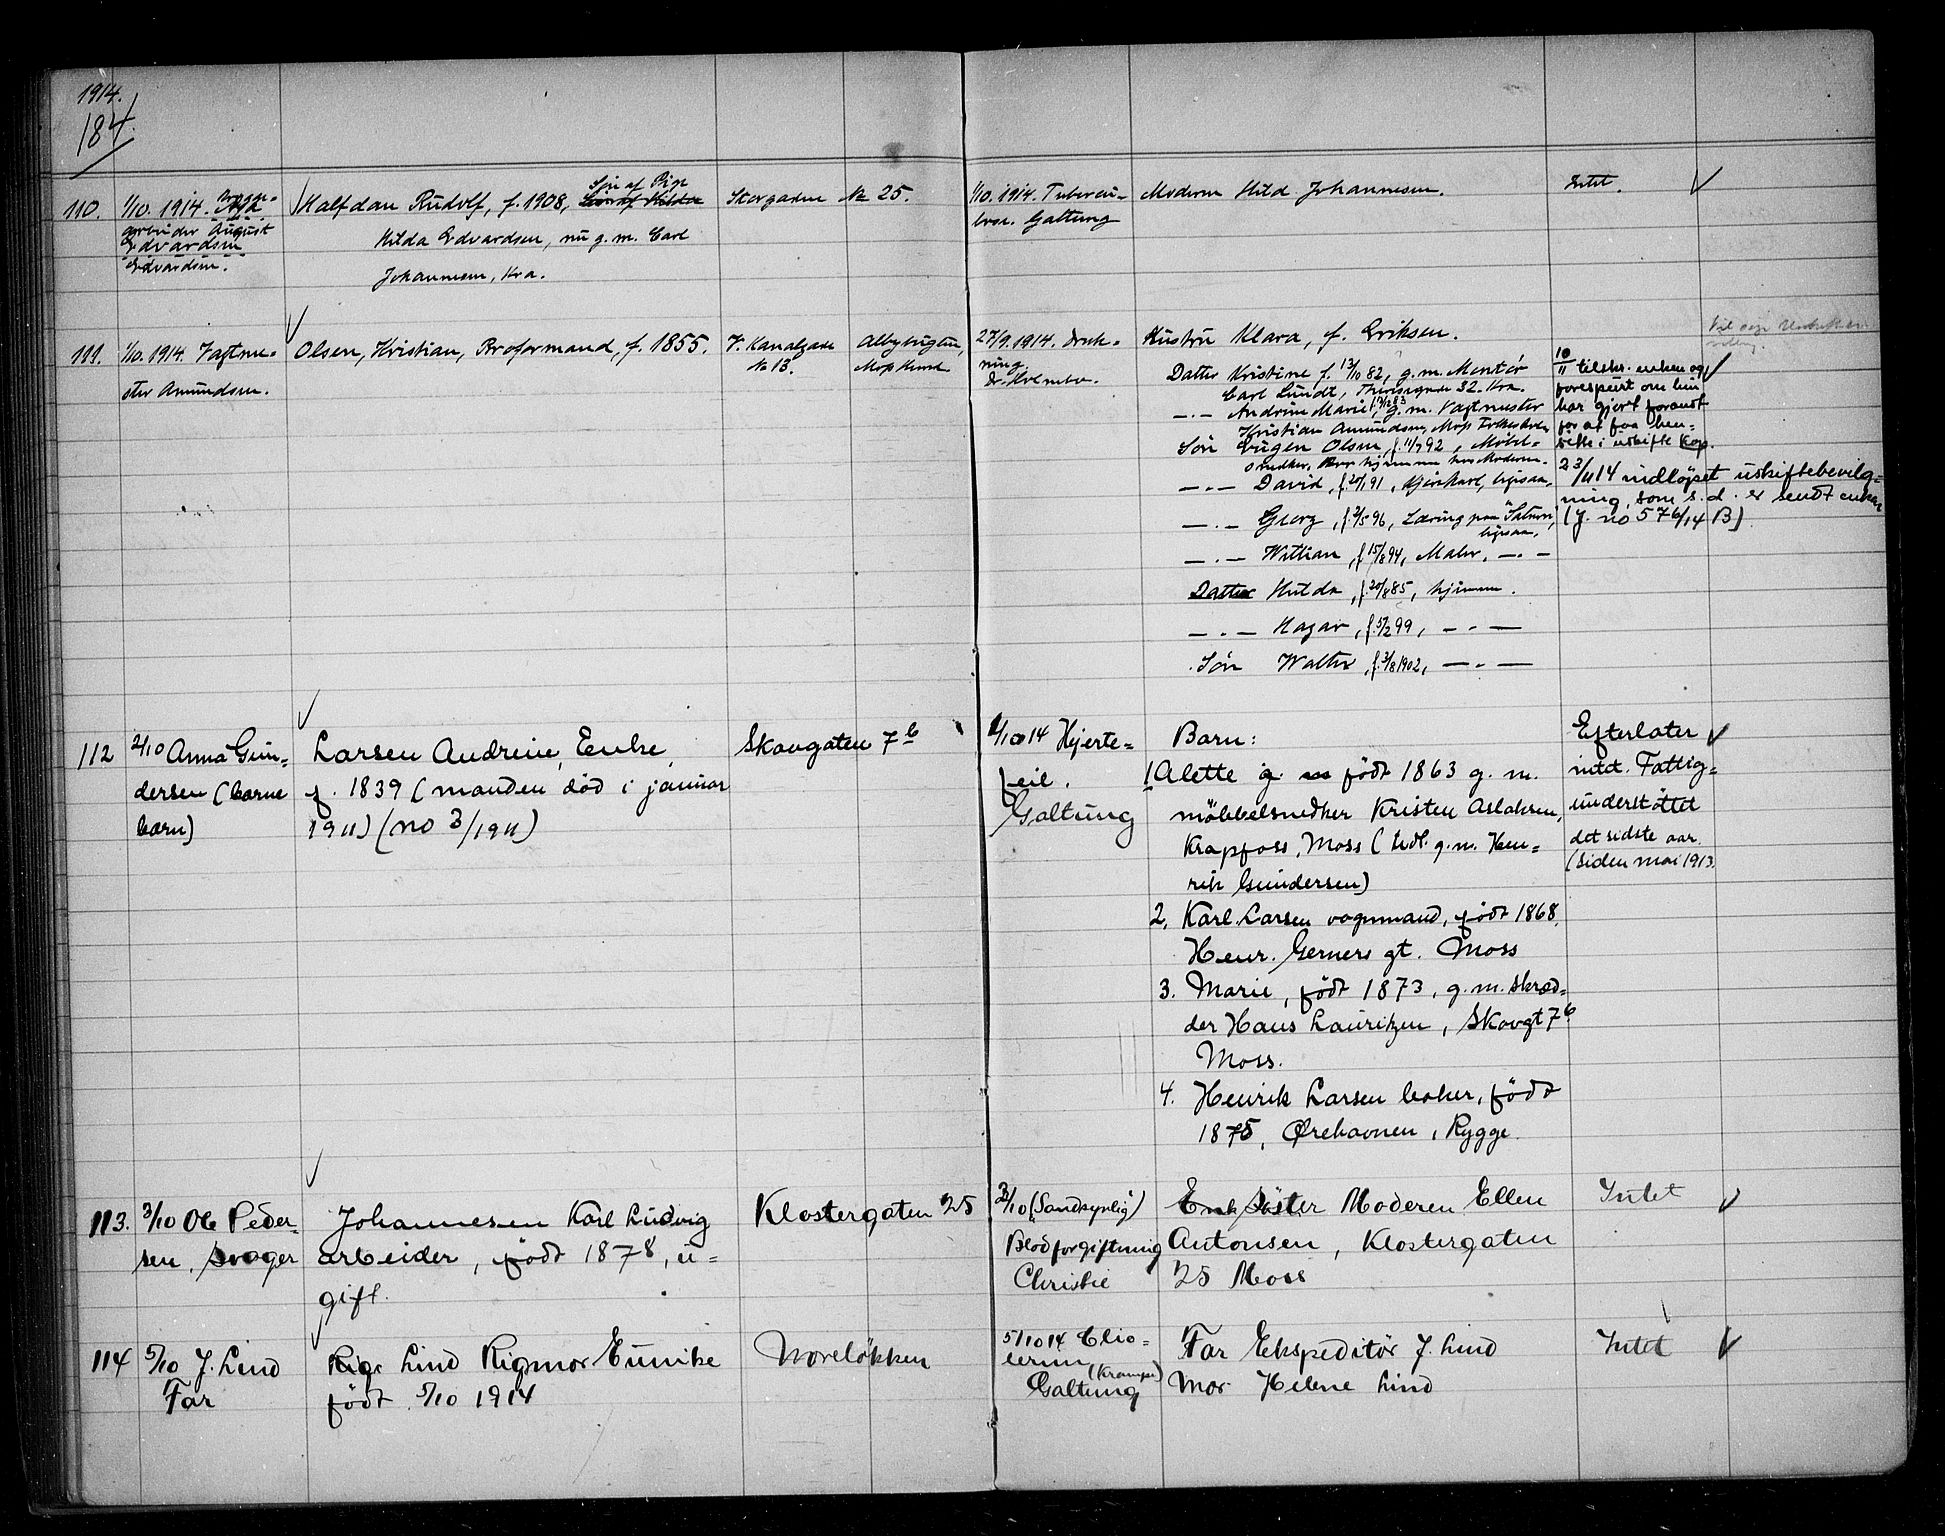 1914.
184.
110. 1/10. 1914.
arbeider August
Edvardsen
Edvardsen.
Halfdan Rudolf, f. 1908, Søn af Pige
Hilda Edvardsen, nu g. m. Carl
Johannesen, Kra.
Storgaden № 25.
1/10. 1914. Tubercu-
lose. Galtung
Moderen Hild. Johannesen.
Intet.
111. 1/10. 1914. Vagtme-
ster Amundsen.
Olsen, Kristian, Broformand, f. 1855.
V. Kanalgade
№ 13.
27/9. 1914. Druk-
ning.
Hustru Klara, f. Eriksen.
Datter Kristine f. 13/10 82, g. m. Montør
Carl Lundt, 32. Kra.
—„— Andrine Marie, g. m. Vagtmester
Kristian Amundsen, Moss
Søn Eugen Olsen, f. 11/7 92, Møbel-
snedker, hjemme hos Moderen.
—„— David, f. 20/1 91, ligesaa.
—„— Georg, f. 2/5 96, Læring paa
ligesaa,
—„— William, f. 15/8 94, Maler, —„—
Datter Hilda, f. 20/8 85, hjemme.
—„— Hagar, f. 5/2 99, —„—
Søn Walter, f. 3/8 1902, —„—
10/11 tilskr. enken og
forespurt om hun
har gjort
for at faa hen-
sitte i uskifte Kop.
23/11 14 indløpet uskiftebevilg-
ning, som s. d. er sendt enken
(J. no 576/14 B).
112 2/10 Anna Gun-
dersen (barne
barn)
Larsen Andrine, Enke,
f. 1839 (manden død i januar
1911) (no 3/1911)
Skovgaten 7b
1/10 14 Hjerte-
feil.
Galtung
Barn:
1 Alette g. født 1863 g. m.
møbbelsnedker Kristen Aslaksen,
Krapfoss, Moss (tidl. g. m. Hen-
rik Gundersen)
2. Karl Larsen vognmand, født 1868,
Henr. Gerners gt. Moss
3. Marie, født 1873, g. m. skræd-
der Hans Lauritzen, Skovgt 7b
Moss.
4. Henrik Larsen baker, født
1875, Ørehavnen, Rygge.
Efterlater
intet. Fattig-
understøttet
det sidste aar.
(siden mai 1913.
113. 3/10 Ole Peder-
sen, Svoger
Johannesen Karl Ludvig
arbeider, født 1878, u-
gift.
Klostergaten 25
3/10 (Sandsynlig)
Blodforgiftning
Christie
Enk Søster Moderen Ellen
Antonsen, Klostergaten
25 Moss
Intet
114 5/10 J. Lind
Far
Pige Lind Rigmor Eunike
født 5/10 1914
Noreløkken
5/10 14
(Krampe)
Galtung
Far Ekspeditør J. Lind
Mor Helene Lind
Intet